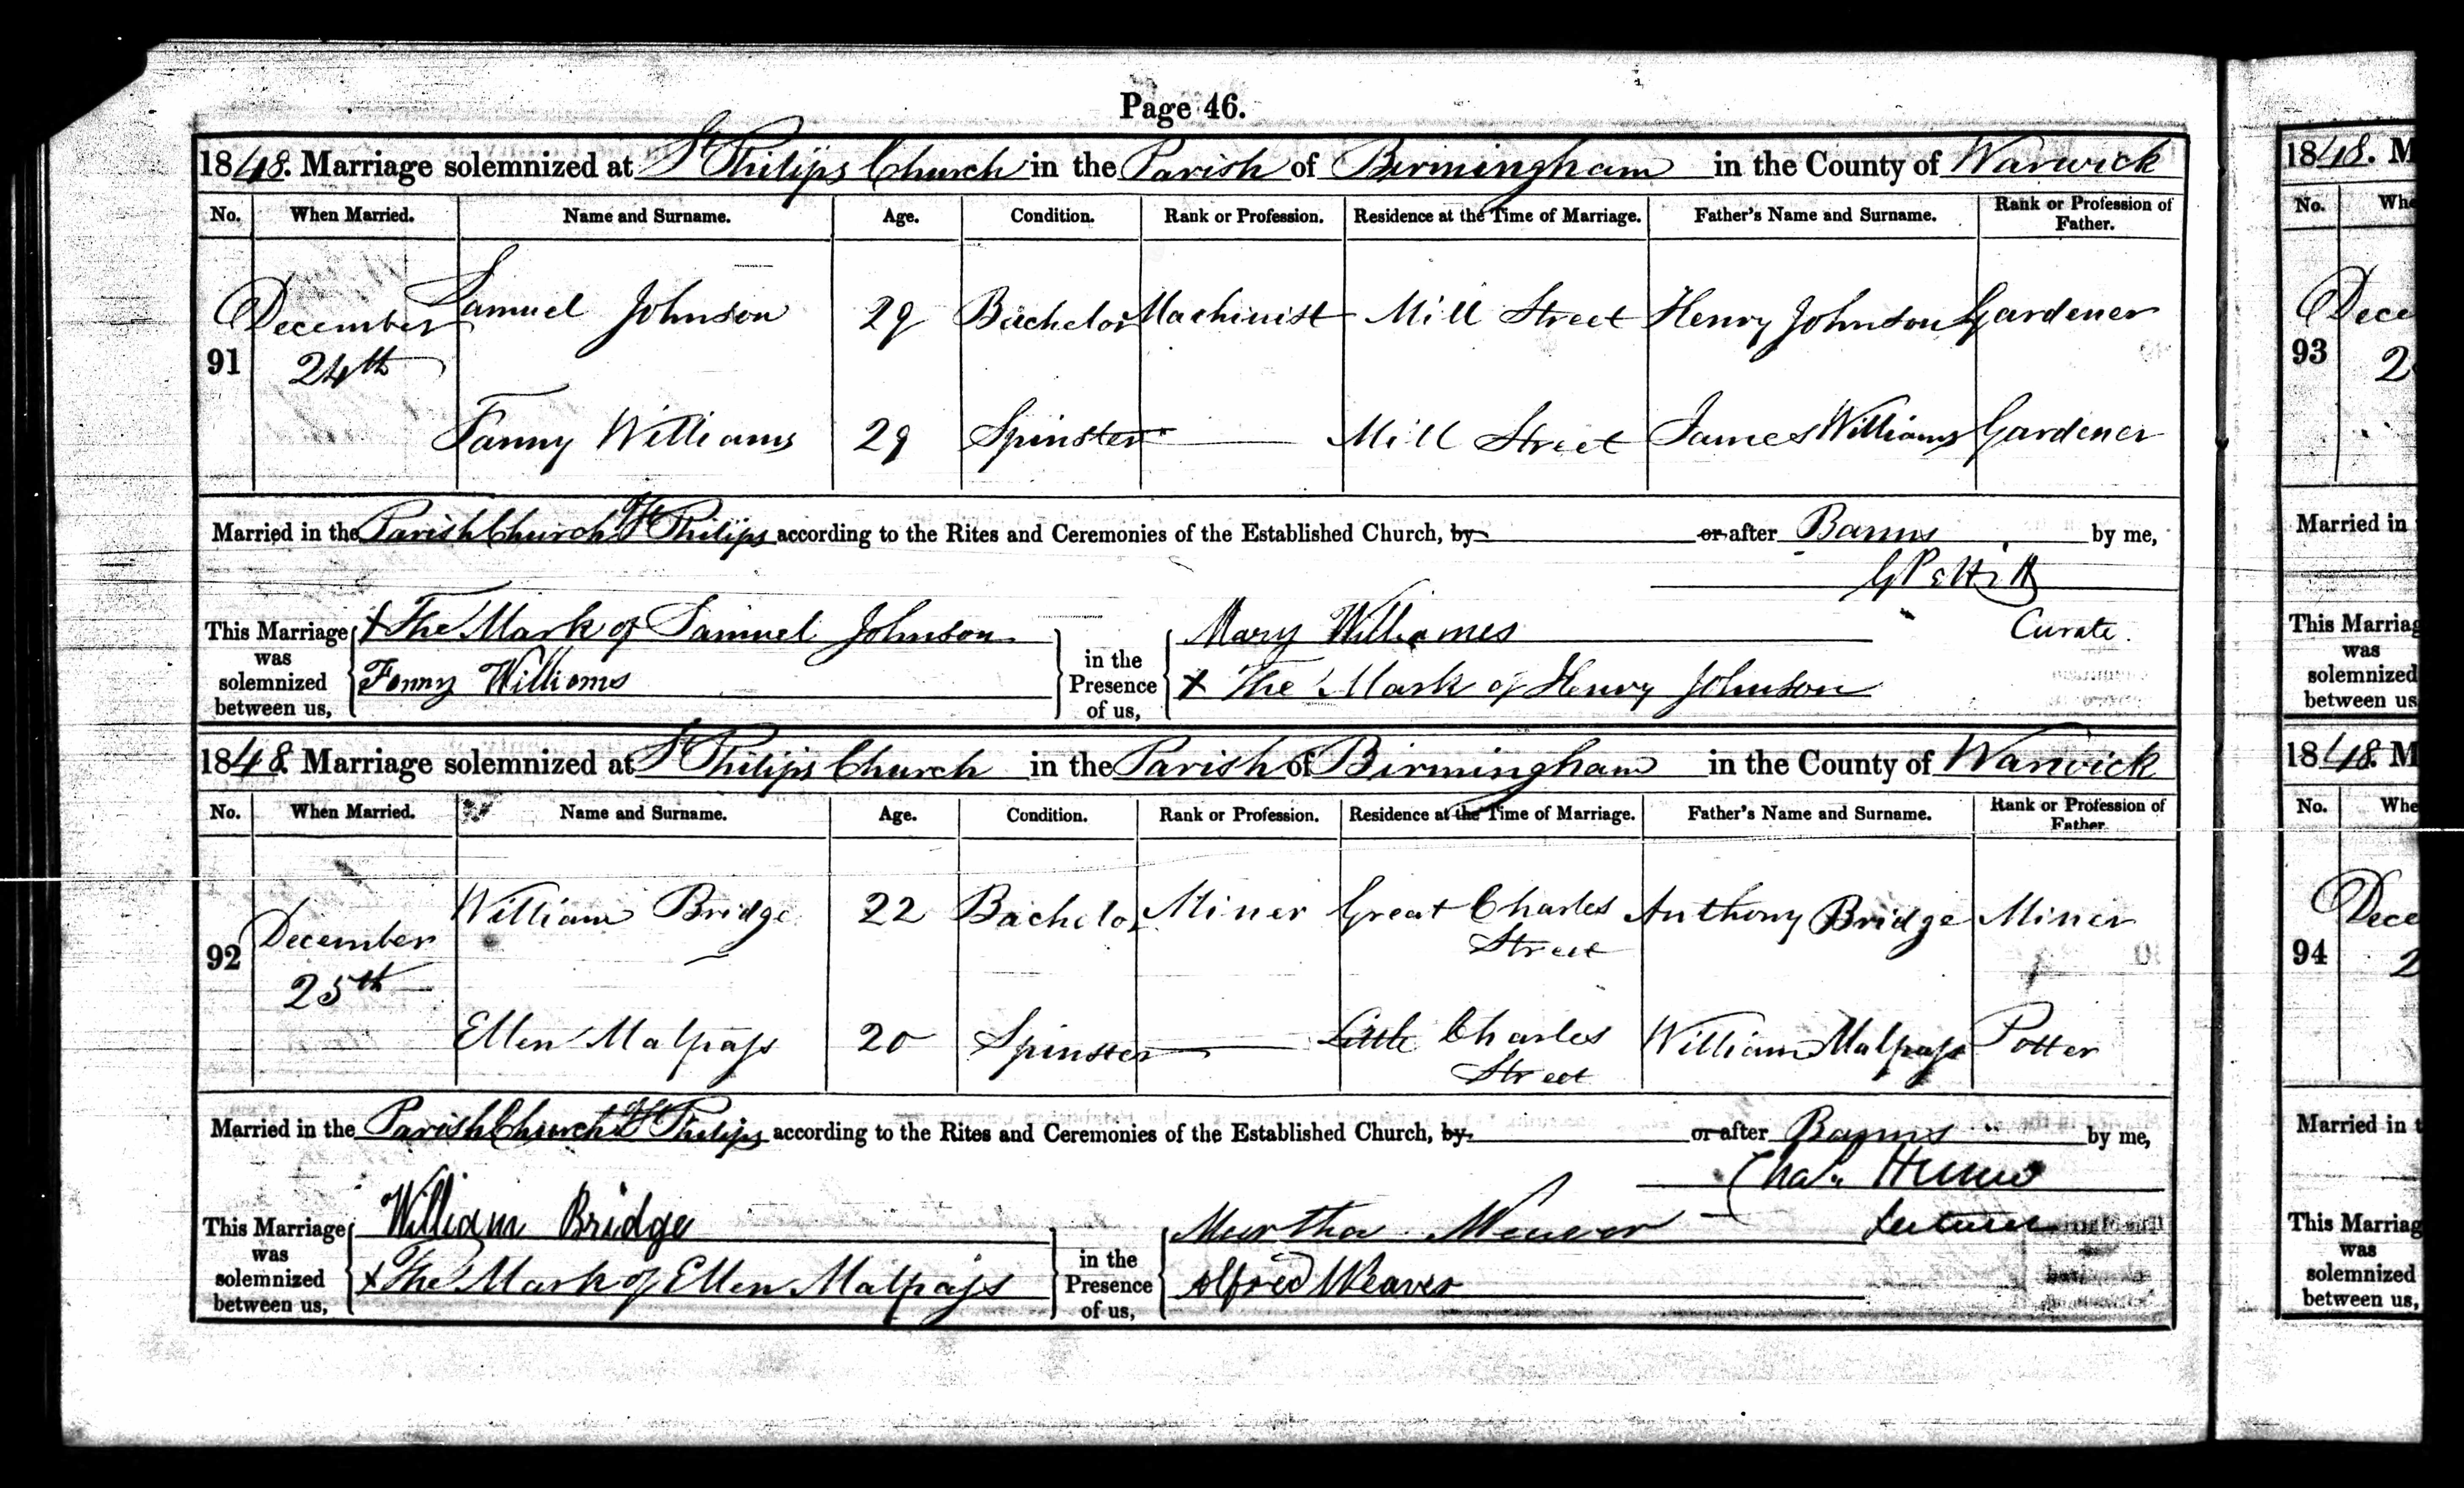 Page 46.
1848. Marriage solemnized at St Philips Church in the Parish of Birmingham in the County of Warwick
No. When Married. Name and Surname. Age. Condition. Rank or Profession. Residence at the Time of Marriage. Father's Name and Surname. Rank or Profession of Father.
91 December 24th Samuel Johnson 29 Bachelor Machinist Mill Street Henry Johnson Gardener
Fanny Williams 29 Spinster Mill Street James Williams Gardener
Married in the Parish Church of St Philips according to the Rites and Ceremonies of the Established Church, by or after Banns by me,
G Pettitt
Curate.
This Marriage was solemnized between us,
X The Mark of Samuel Johnson
Fanny Williams
in the Presence of us,
Mary Williames
X The Mark of Henry Johnson
1848. Marriage solemnized at St Philips Church in the Parish of Birmingham in the County of Warwick
No. When Married. Name and Surname. Age. Condition. Rank or Profession. Residence at the Time of Marriage. Father's Name and Surname. Rank or Profession of Father.
92 December 25th William Bridge 22 Bachelor Miner Great Charles Street Anthony Bridge Miner
Ellen Malpass 20 Spinster Little Charles Street William Malpass Potter
Married in the Parish Church of St Philips according to the Rites and Ceremonies of the Established Church, by or after Banns by me,
Chas.
This Marriage was solemnized between us,
William Bridge
X The Mark of Ellen Malpass
in the Presence of us,
Martha Weaver
Alfred Weaver
1848. M
No. Whe
93 Dece
2
Married in
This Marriag
was
solemnized
between us
1848. M
No. Whe
94 Dece
2
Married in t
This Marriag
was
solemnized
between us,